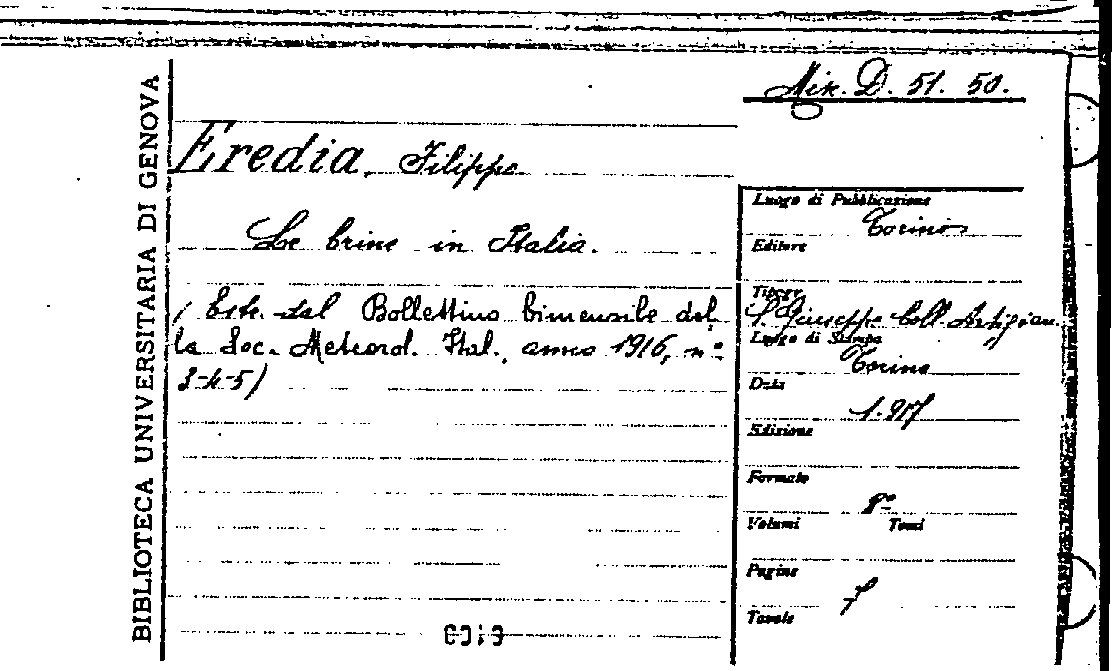 BIBLIOTECA UNIVERSITARIA DI GENOVA
Mik. D. 51. 50.
Eredia, Filippo
Le brine in Italia.
( Estr. dal Bollettino bimensile del
la Soc. Meteorol. Ital., anno 1916, nº
3-4-5)
Luogo di Pubblicazione
Torino
Editore
Tipogr.
S. Giuseppe Coll. Artigian.
Luogo di Stampa
Torino
Data
1917
Edizione
Formato
8º
Volumi Tomi
Pagine
7
Tavole